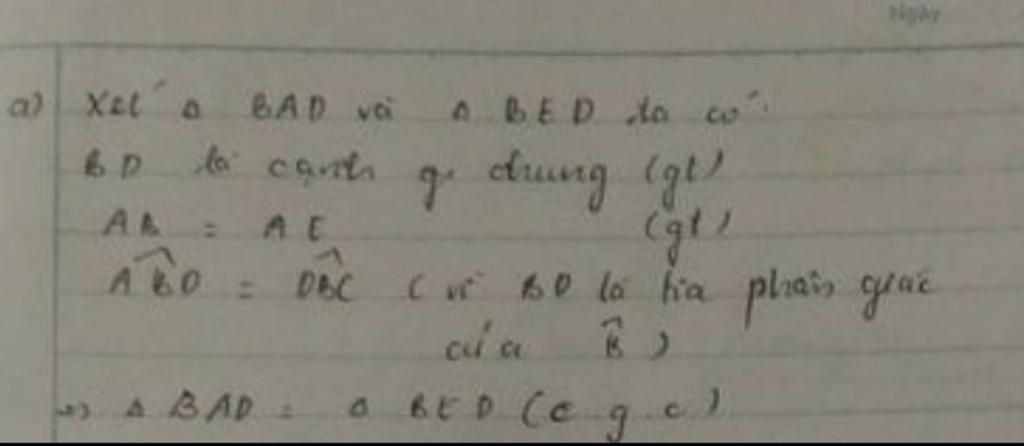 Ngày
a) Xét Δ BAD và Δ BED ta có:
BD là cạnh chung (gt)
AB = AE (gt)
ABD = DBC ( vì BD là tia phân giác
của B̂ )
=> Δ BAD = Δ BED (c g.c)